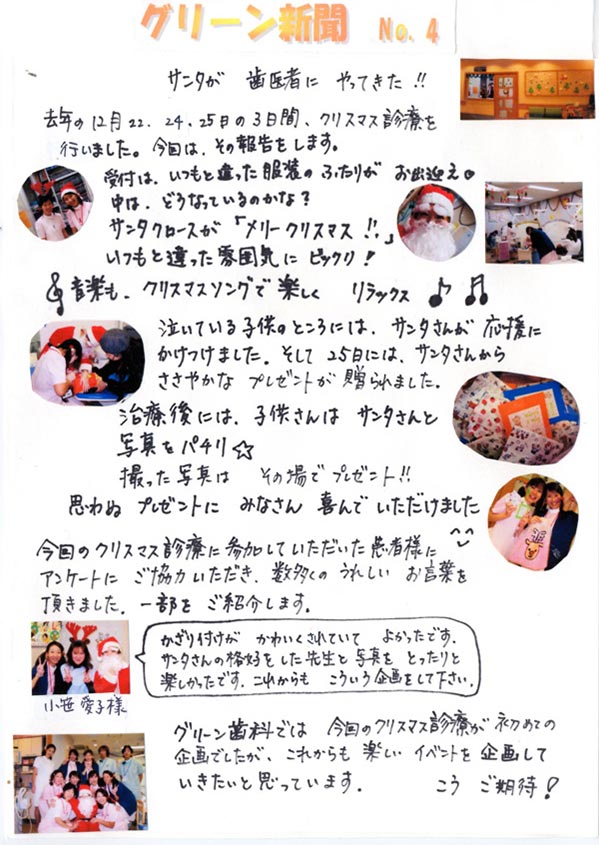 グリーン新聞 No.4
サンタが 歯医者に やってきた!!
去年の12月22.24.25日の3日間、クリスマス診療を
行いました。今回は、その報告をします。
受付は、いつもと違った服装の ふたりが お出迎え。
中は、どうなっているのかな?
サンタクロースが「メリークリスマス!!」
いつもと違った雰囲気に ビックリ!
音楽も、クリスマスソングで楽しく リラックス
泣いている子供のところには、サンタさんが 応援に
かけつけました。そして 25日には、サンタさんから
ささやかな プレゼントが 贈られました。
治療後には、子供さんは サンタさんと
写真をパチリ☆
撮った写真は その場でプレゼント!!
思わぬ プレゼントに みなさん 喜んでいただけました
今回のクリスマス診療に参加していただいた患者様に
アンケートに ご協力いただき、数多くの うれしい お言葉を
頂きました。一部を ご紹介します。
かざり付けが かわいくされていて よかったです。
サンタさんの格好をした先生と写真を とったりと
楽しかったです。これからも こういう企画をして下さい。
小笹 愛子様
グリーン歯科では 今回のクリスマス診療が 初めての
企画でしたが、これからも 楽しい イベントを 企画して
いきたいと思っています。 こう ご期待!